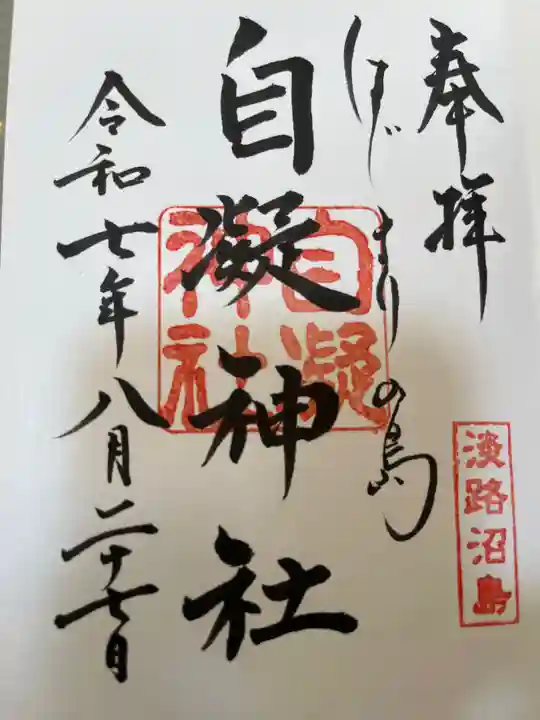 奉拝
はじまりの島
自凝神社
令和七年八月二十七日
自凝
神社
淡路沼島